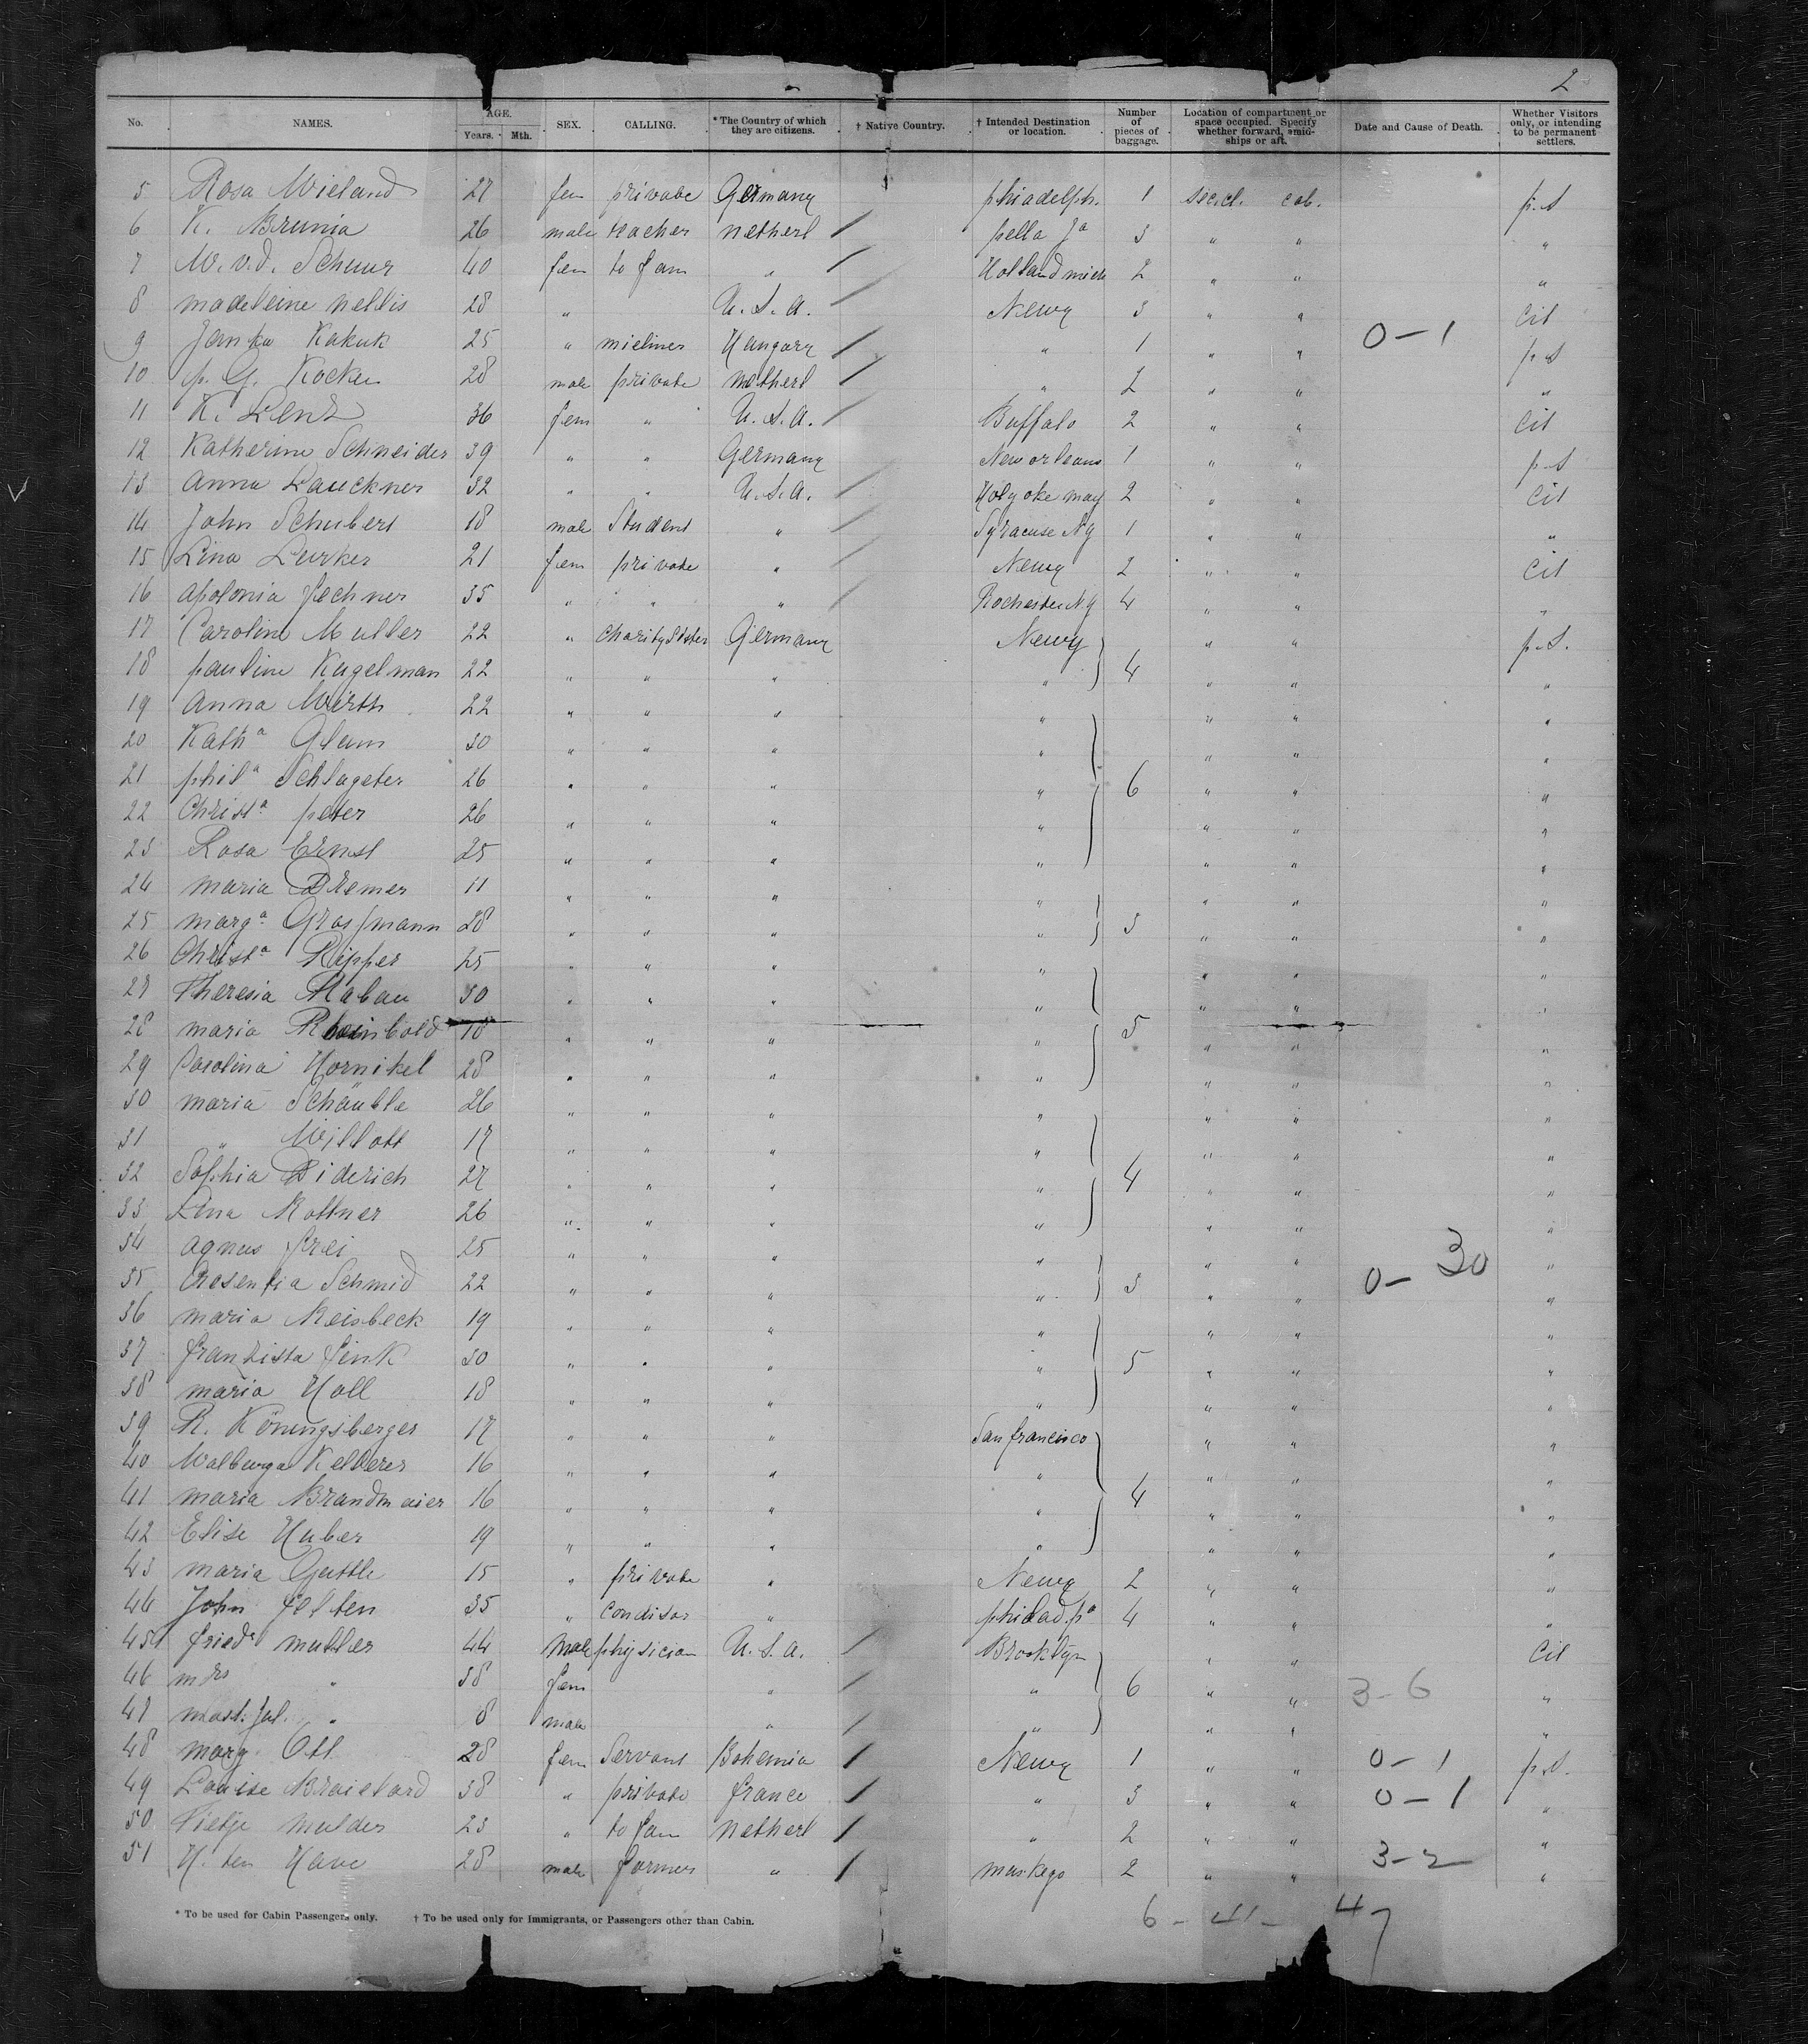 2
No. NAMES. AGE. Years. Mth. SEX. CALLING. * The Country of which they are citizens. † Native Country. † Intended Destination or location. Number of pieces of baggage. Location of compartment or space occupied. Specify whether forward, amidships or aft. Date and Cause of Death. Whether Visitors only, or intending to be permanent settlers.
5 Rosa Wieland 27 fem private Germany phiadelph. 1 sec.cl. cab. p.S
6 K. Brunia 26 male teacher netherl / pella Ja 3 " " "
7 W. v.d. Schuur 40 fem to fam " / Holland mich 2 " " "
8 madeleine nellis 28 " U.S.A. / Newy 3 " " Cit
9 Janka Kakuk 25 " mieliner Hungary / " 1 " " 0-1 p.S
10 p. G. Kocken 28 male private netherl / " 2 " " "
11 K. Lenz 36 fem " U.S.A. / Buffalo 2 " " Cit
12 Katherine Schneider 39 " " Germany New orleans 1 " " p.S
13 Anna Lauckner 32 " " U.S.A. / Holyoke may 2 " " Cit
14 John Schubert 18 male Student " / Syracuse Ny 1 " " "
15 Lina Lurker 21 fem private " / Newy 2 " " Cit
16 Apolonia fechner 35 " " " / Rochester Ny 4 " " "
17 Caroline Muller 22 " Charity Sister Germany Newy " " p.S.
18 pauline Kugelman 22 " " " " 4 " " "
19 Anna Wirth 22 " " " " " " "
20 Kath.a Glum 30 " " " " " " "
21 phil.a Schlageter 26 " " " " 6 " " "
22 Christ.a peter 26 " " " " " " "
23 Rosa Ernst 25 " " " " " " "
24 maria Dremer 11 " " " " " " "
25 marg.a Grossmann 28 " " " " 3 " " "
26 Christ.a Ripper 25 " " " " " " "
27 Theresia Rabau 30 " " " " " " "
28 maria Reinbold 18 " " " " 5 " " "
29 Carolina Hornikel 28 " " " " " " "
30 maria Schäuble 26 " " " " " " "
31 " Willott 17 " " " " " " "
32 Sophia Diderich 27 " " " " 4 " " "
33 Lena Rottner 26 " " " " " " "
34 Agnes frei 25 " " " " " " "
35 Cresentia Schmid 22 " " " " 3 " " 0-30 "
36 maria Reisbeck 19 " " " " " " "
37 franziska fink 30 " " " " 5 " " "
38 maria Holl 18 " " " " " " "
39 R. Köningsberger 17 " " " San francisco " " "
40 Walburga Kellerer 16 " " " " " " "
41 maria Brandmaier 16 " " " " 4 " " "
42 Elise Huber 19 " " " " " " "
43 maria Guttle 15 " private " Newy 2 " " "
44 John felten 35 " Conditor " philad. pa 4 " " "
45 fried. muller 44 male physician U.S.A. / Brooklyn " " Cit
46 mrs " 38 fem " / " 6 " " 3-6 "
47 mast. Jul. " 8 male " / " " " "
48 marg. Ott 28 fem Servant Bohemia / Newy 1 " " 0-1 p.S.
49 Louise Braielard 38 " private france / " 3 " " 0-1 "
50 Tietje mulder 23 " to fam netherl / " 2 " " "
51 H. ten Have 28 male farmer " / muskego 2 " " 3-2 "
* To be used for Cabin Passengers only. † To be used only for Immigrants, or Passengers other than Cabin.
6 - 41 - 47